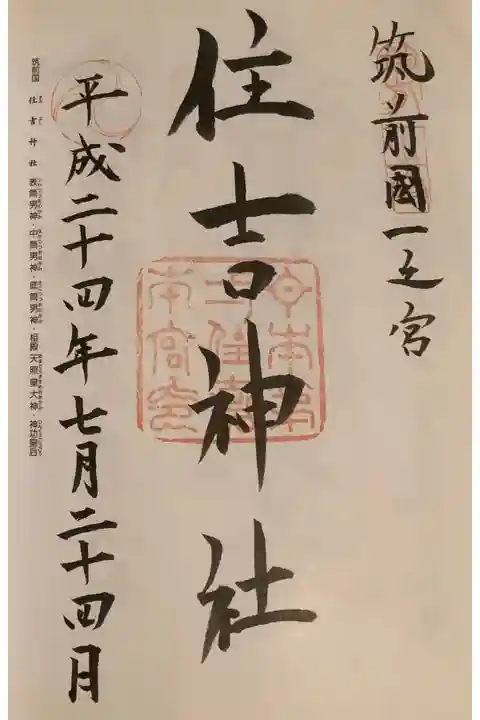 筑前國一之宮
住吉神社
日本第
一住吉
本宮
平成二十四年七月二十四月
筑前国 住吉神社 表筒男神・中筒男神・底筒男神・相殿 天照皇大神・神功皇后